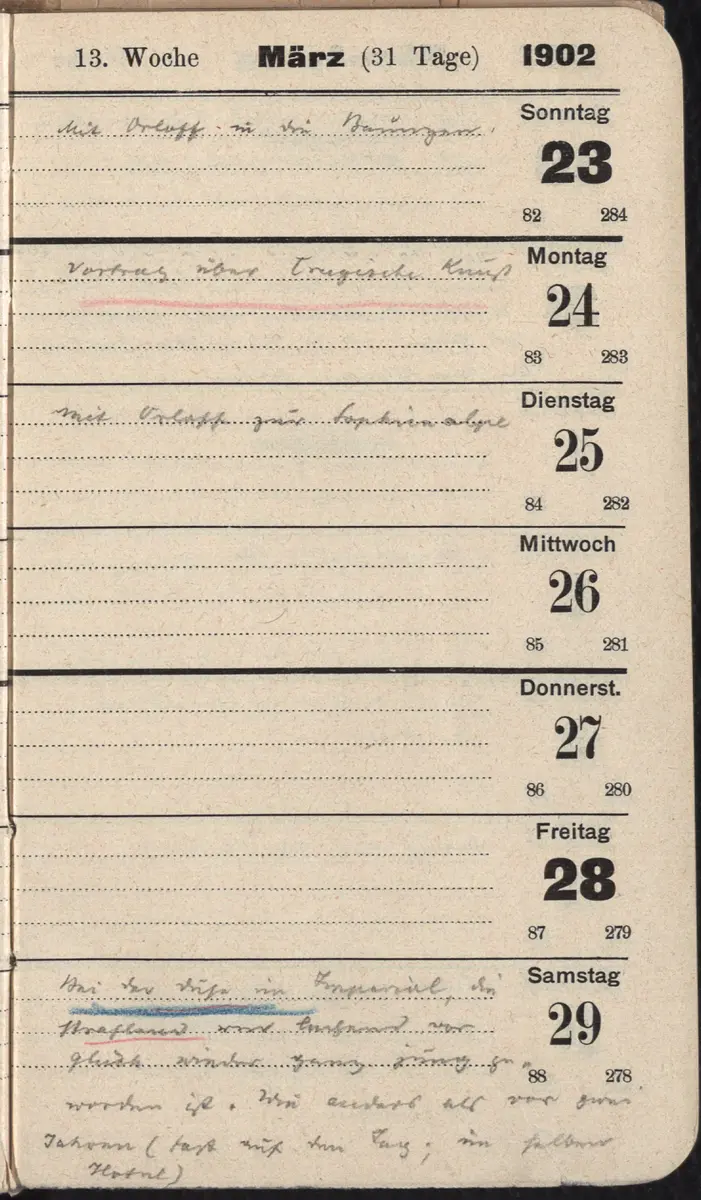 13. Woche März (31 Tage) 1902
Sonntag
Mit Orloff in die
23
82 284
Montag
Vortrag über Tragische Kunst
24
83 283
Dienstag
Mit Orloff zur Sophienalpe
25
84 282
Mittwoch
26
85 281
Donnerst.
27
86 280
Freitag
28
87 279
Samstag
Bei der Duse im Imperial, die
29
strahlend und lachend vor
Glück wieder ganz jung ge-
88 278
worden ist. Wie anders als vor zwei
Jahren (fast auf den Tag; im selben
Hotel)